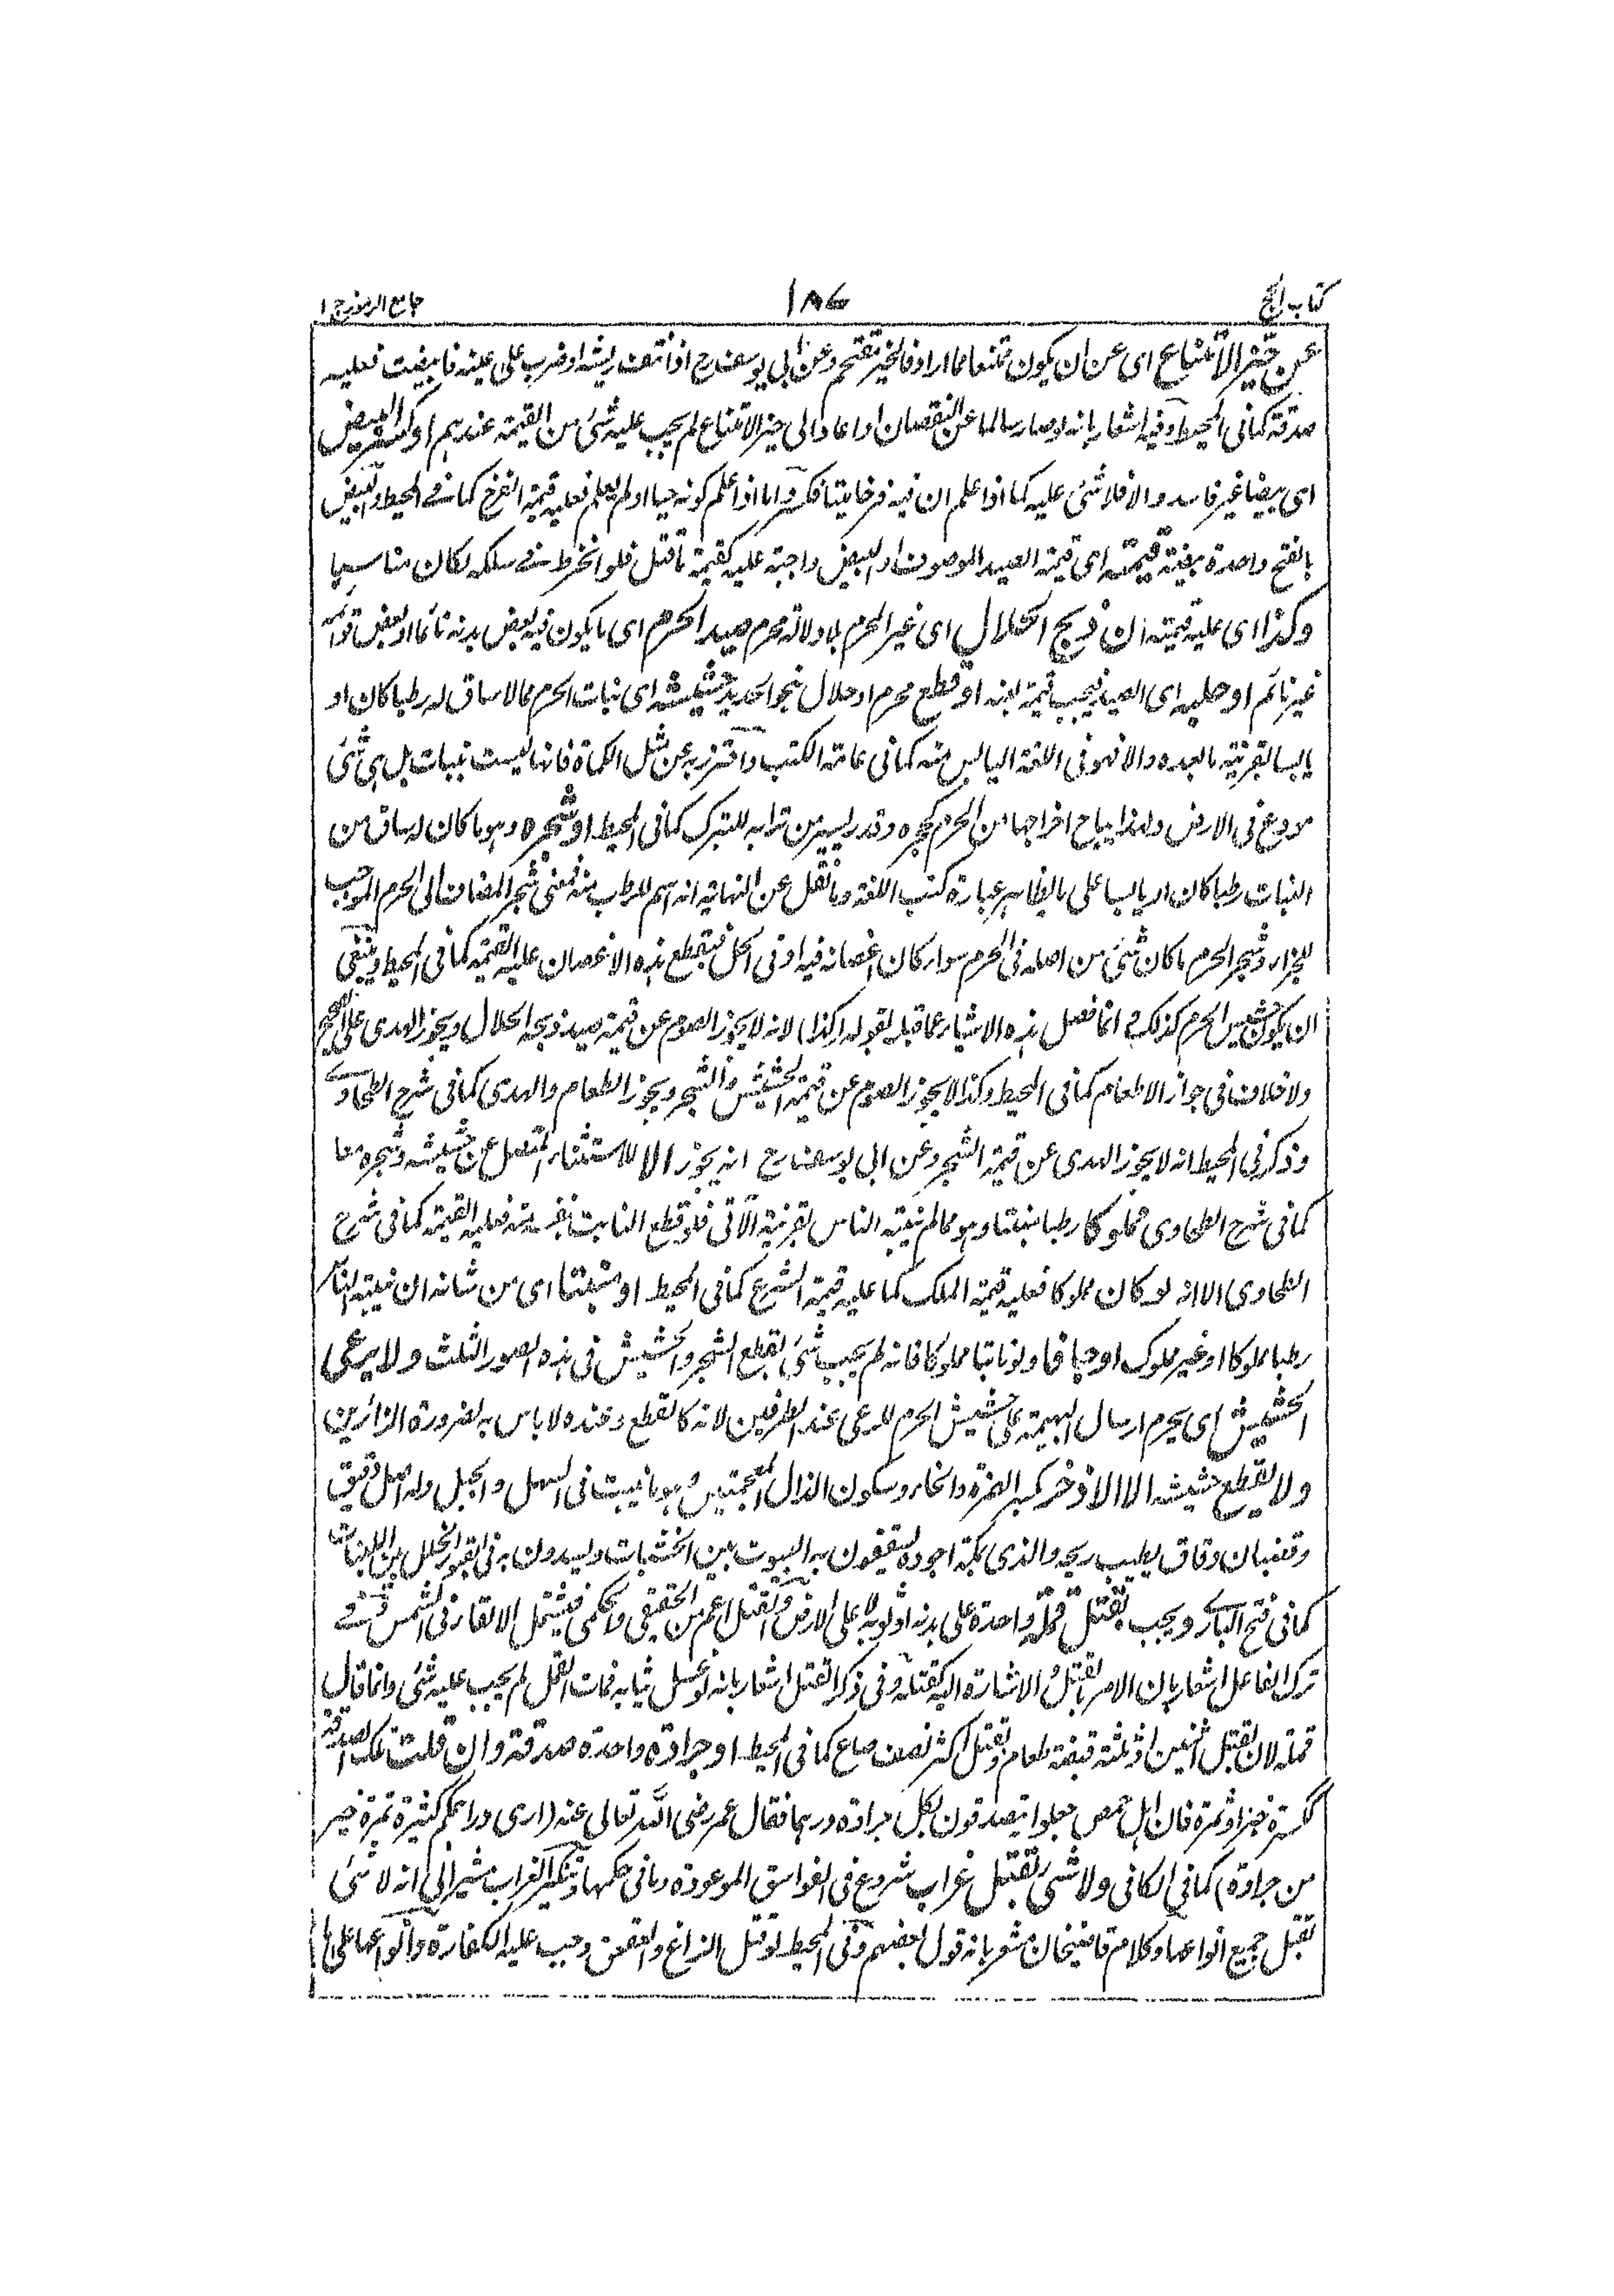 كتاب الحج ١٨٧ جامع الرموز ج ١
عن حيز الامتناع اى عن ان يكون ممتنعا مما اراد فالحيز مقحم وعن ابى يوسف رح اذا نتف ريشه او ضرب على عينه فابيضت فعليه
صدقة كما فى المحيط وفيه اشعار بانه لو صار سالما عن النقصان او اعاد الى حيز الامتناع لم يجب عليه شئ من القيمة عندهم او كسر البيض
اى بيضا غير فاسد والا فلا شئ عليه كما اذا علم ان فيه فرخا ميتا فكسر واما اذا علم كونه حيا او لم يعلم فعليه قيمة الفرخ كما فى المحيط والبيض
بالفتح واحدة بيضة قيمته اى قيمة الصيد الموصوف او البيض واجبة عليه كقيمة ما قتل فلو انخرط فى سلكه لكان مناسبا
وكذا اى عليه قيمته ان ذبح الحلال اى غير المحرم بلا دلالة محرم صيد الحرم اى ما يكون فيه بعض بدنه نائما او بعض قوائمه
غير نائم او حلبه اى الصيد فيجب قيمة لبنه او قطع محرم او حلال بنحو الحديد حشيشه اى نبات الحرم مما لا ساق له رطبا كان او
يابسا بقرينة ما بعده والا فهو فى اللغة اليابس منه كما فى عامة الكتب واحترز به عن مثل الكماة فانها ليست بنبات بل هى شئ
مودع فى الارض ولهذا يباح اخراجها من الحرم كحجره وقدر يسير من ترابه للتبرك كما فى المحيط او شجره وهو ما كان له ساق من
النبات رطبا كان او يابسا على ما يظاهر عبارة كتب اللغة وما نقل عن النهاية انه اسم للرطب منه فمعنى شجر المضاف الى الحرم الموجب
للجزاء وشجر الحرم ما كان شئ من اصله فى الحرم سواء كان اغصانه فيه او فى الحل فبقطع هذه الاغصان عليه القيمة كما فى المحيط وينبغى
ان يكون حشيش الحرم كذلك انما فصل هذه الاشياء عما قبله بقوله (كذا) لانه لا يجوز الصوم عن قيمة صيد ذبحه الحلال ويجوز الهدى على الصحيح
ولا خلاف فى جواز الاطعام كما فى المحيط وكذا لا يجوز الصوم عن قيمة الحشيش والشجر ويجوز الطعام والهدى كما فى شرح الطحاوى
وذكر فى المحيط انه لا يجوز الهدى عن قيمة الشجر وعن ابى يوسف رح انه يجوز الا للاستثناء المتصل عن حشيشه وشجره معا
كما فى شرح الطحاوى مملوكا رطبا منبتا وهو مما لم ينبته الناس بقرينة الآتى فلو قطع النابت بنفسه فعليه القيمة كما فى شرح
الطحاوى الا انه لو كان مملوكا فعليه قيمة الملك كما عليه قيمة الشرع كما فى المحيط او منبتا اى من شانه ان ينبته الناس
رطبا مملوكا او غير مملوك او جافا ولو نابتا مملوكا فانه لم يجب شئ بقطع الشجر والحشيش فى هذه الصور الثلث ولا يرعى
الحشيش اى يحرم ارسال البهيمة على حشيش الحرم للرعى عند الطرفين لانه كالقطع وعنده لا باس به لضرورة الزائرين
ولا يقطع حشيشه الا الاذخر بكسر الهمزة والخاء وسكون الذال المعجمتين وهو ما ينبت فى السهل والجبل وله اصل دقيق
وقضبان دقاق يطيب ريحه والذى بمكة اجوده يسقفون به البيوت بين الخشبات ويسدون به فى القبور الخلل بين اللبنات
كما فى فتح البارى ويجب بقتل قملة واحدة على بدنه او ثوبه لا على الارض والقتل اعم من الحقيقى والحكمى فيشتمل الالقاء فى الشمس وفى
ترك الفاعل اشعار بان الامر بالقتل والاشارة اليه كقتله وفى ذكر القتل اشعار بانه لو غسل ثيابه فمات القمل لم يجب عليه شئ وانما قال
قملة لان بقتل اثنين او ثلثة قبضة طعام وبقتل اكثر نصف صاع كما فى المحيط او جرادة واحدة صدقة وان قلت تلك الصدقة
ككسرة خبز او تمرة فان اهل حمص جعلوا يتصدقون بكل جرادة درهما فقال عمر رضى الله تعالى عنه (ارى دراهمكم كثيرة تمرة خير
من جرادة) كما فى الكافى ولا شئ بقتل غراب شروع فى الفواسق الموعودة وما فى حكمها وتنكير الغراب مشير الى انه لا شئ
بقتل جميع انواعها وكلام قاضيخان مشعر بانه قول بعضهم وفى المحيط لو قتل الزاغ والعقعق وجب عليه الكفارة وانواعها على ما